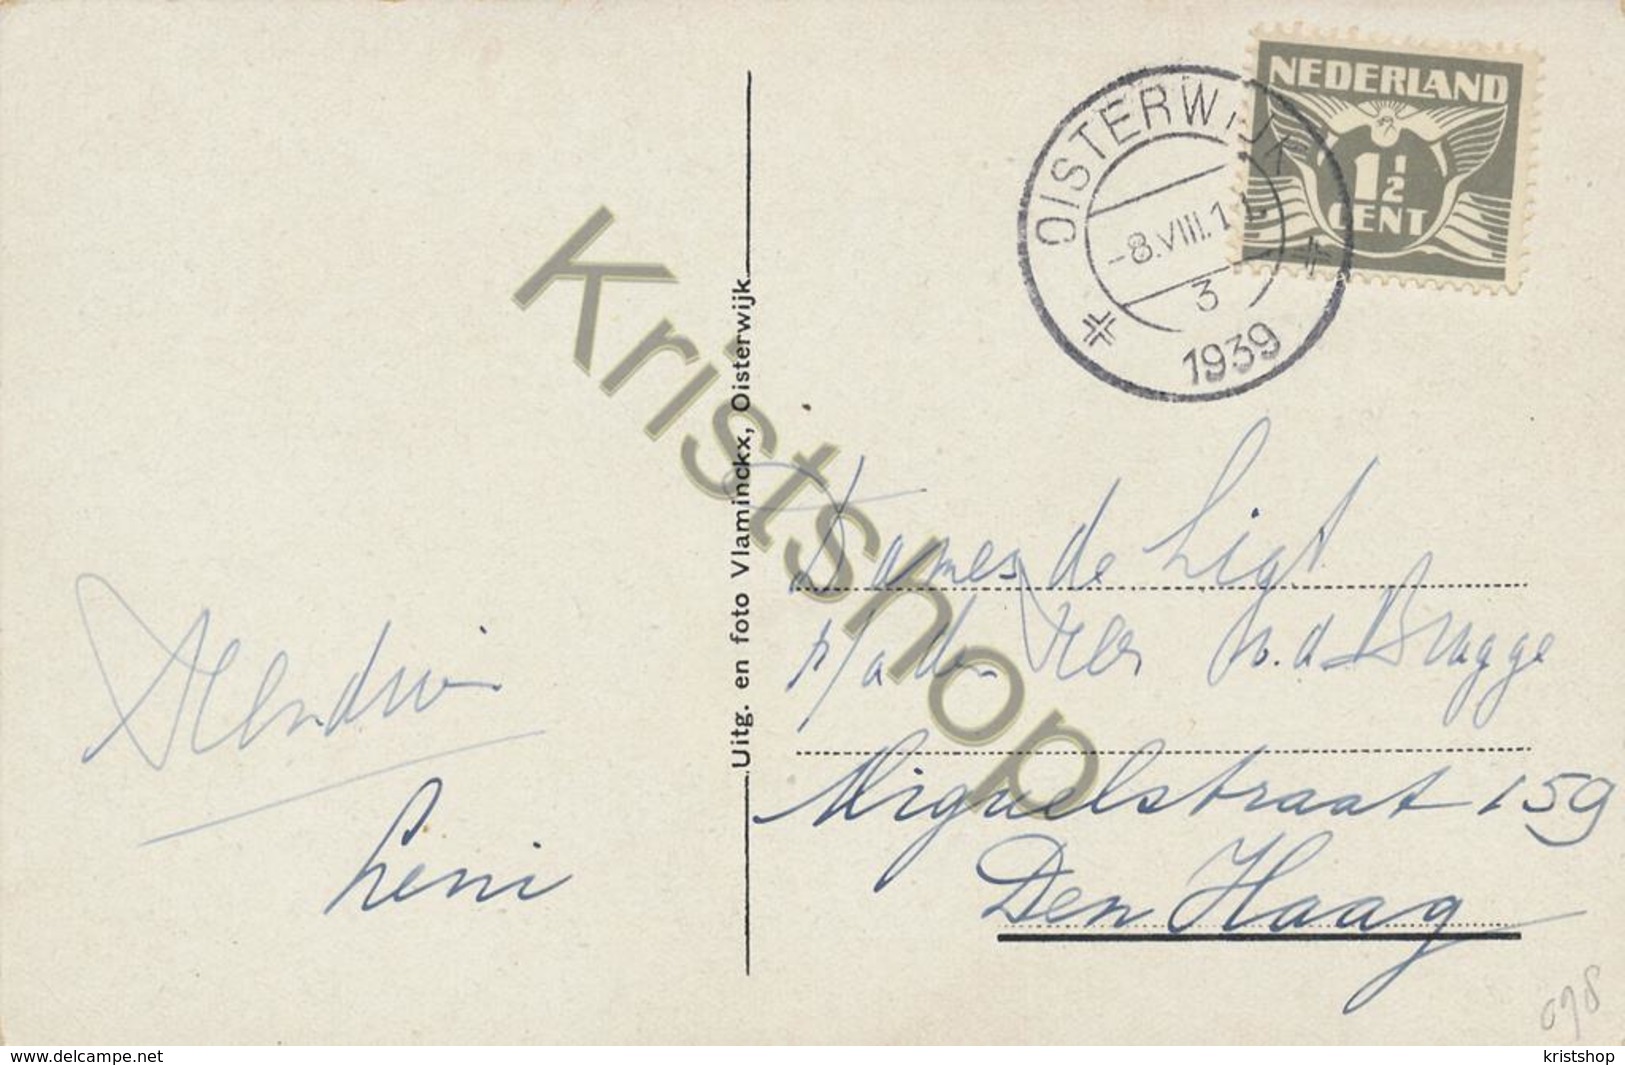 NEDERLAND
1½
CENT
OISTERWIJK
-8.VIII.1
3
1939
Uitg. en foto Vlaminckx, Oisterwijk
Kristshop
Dames de Ligt
p/a de Heer v.d. Brugge
Miguelstraat 159
Den Haag
Leni
098
www.delcampe.net
kristshop